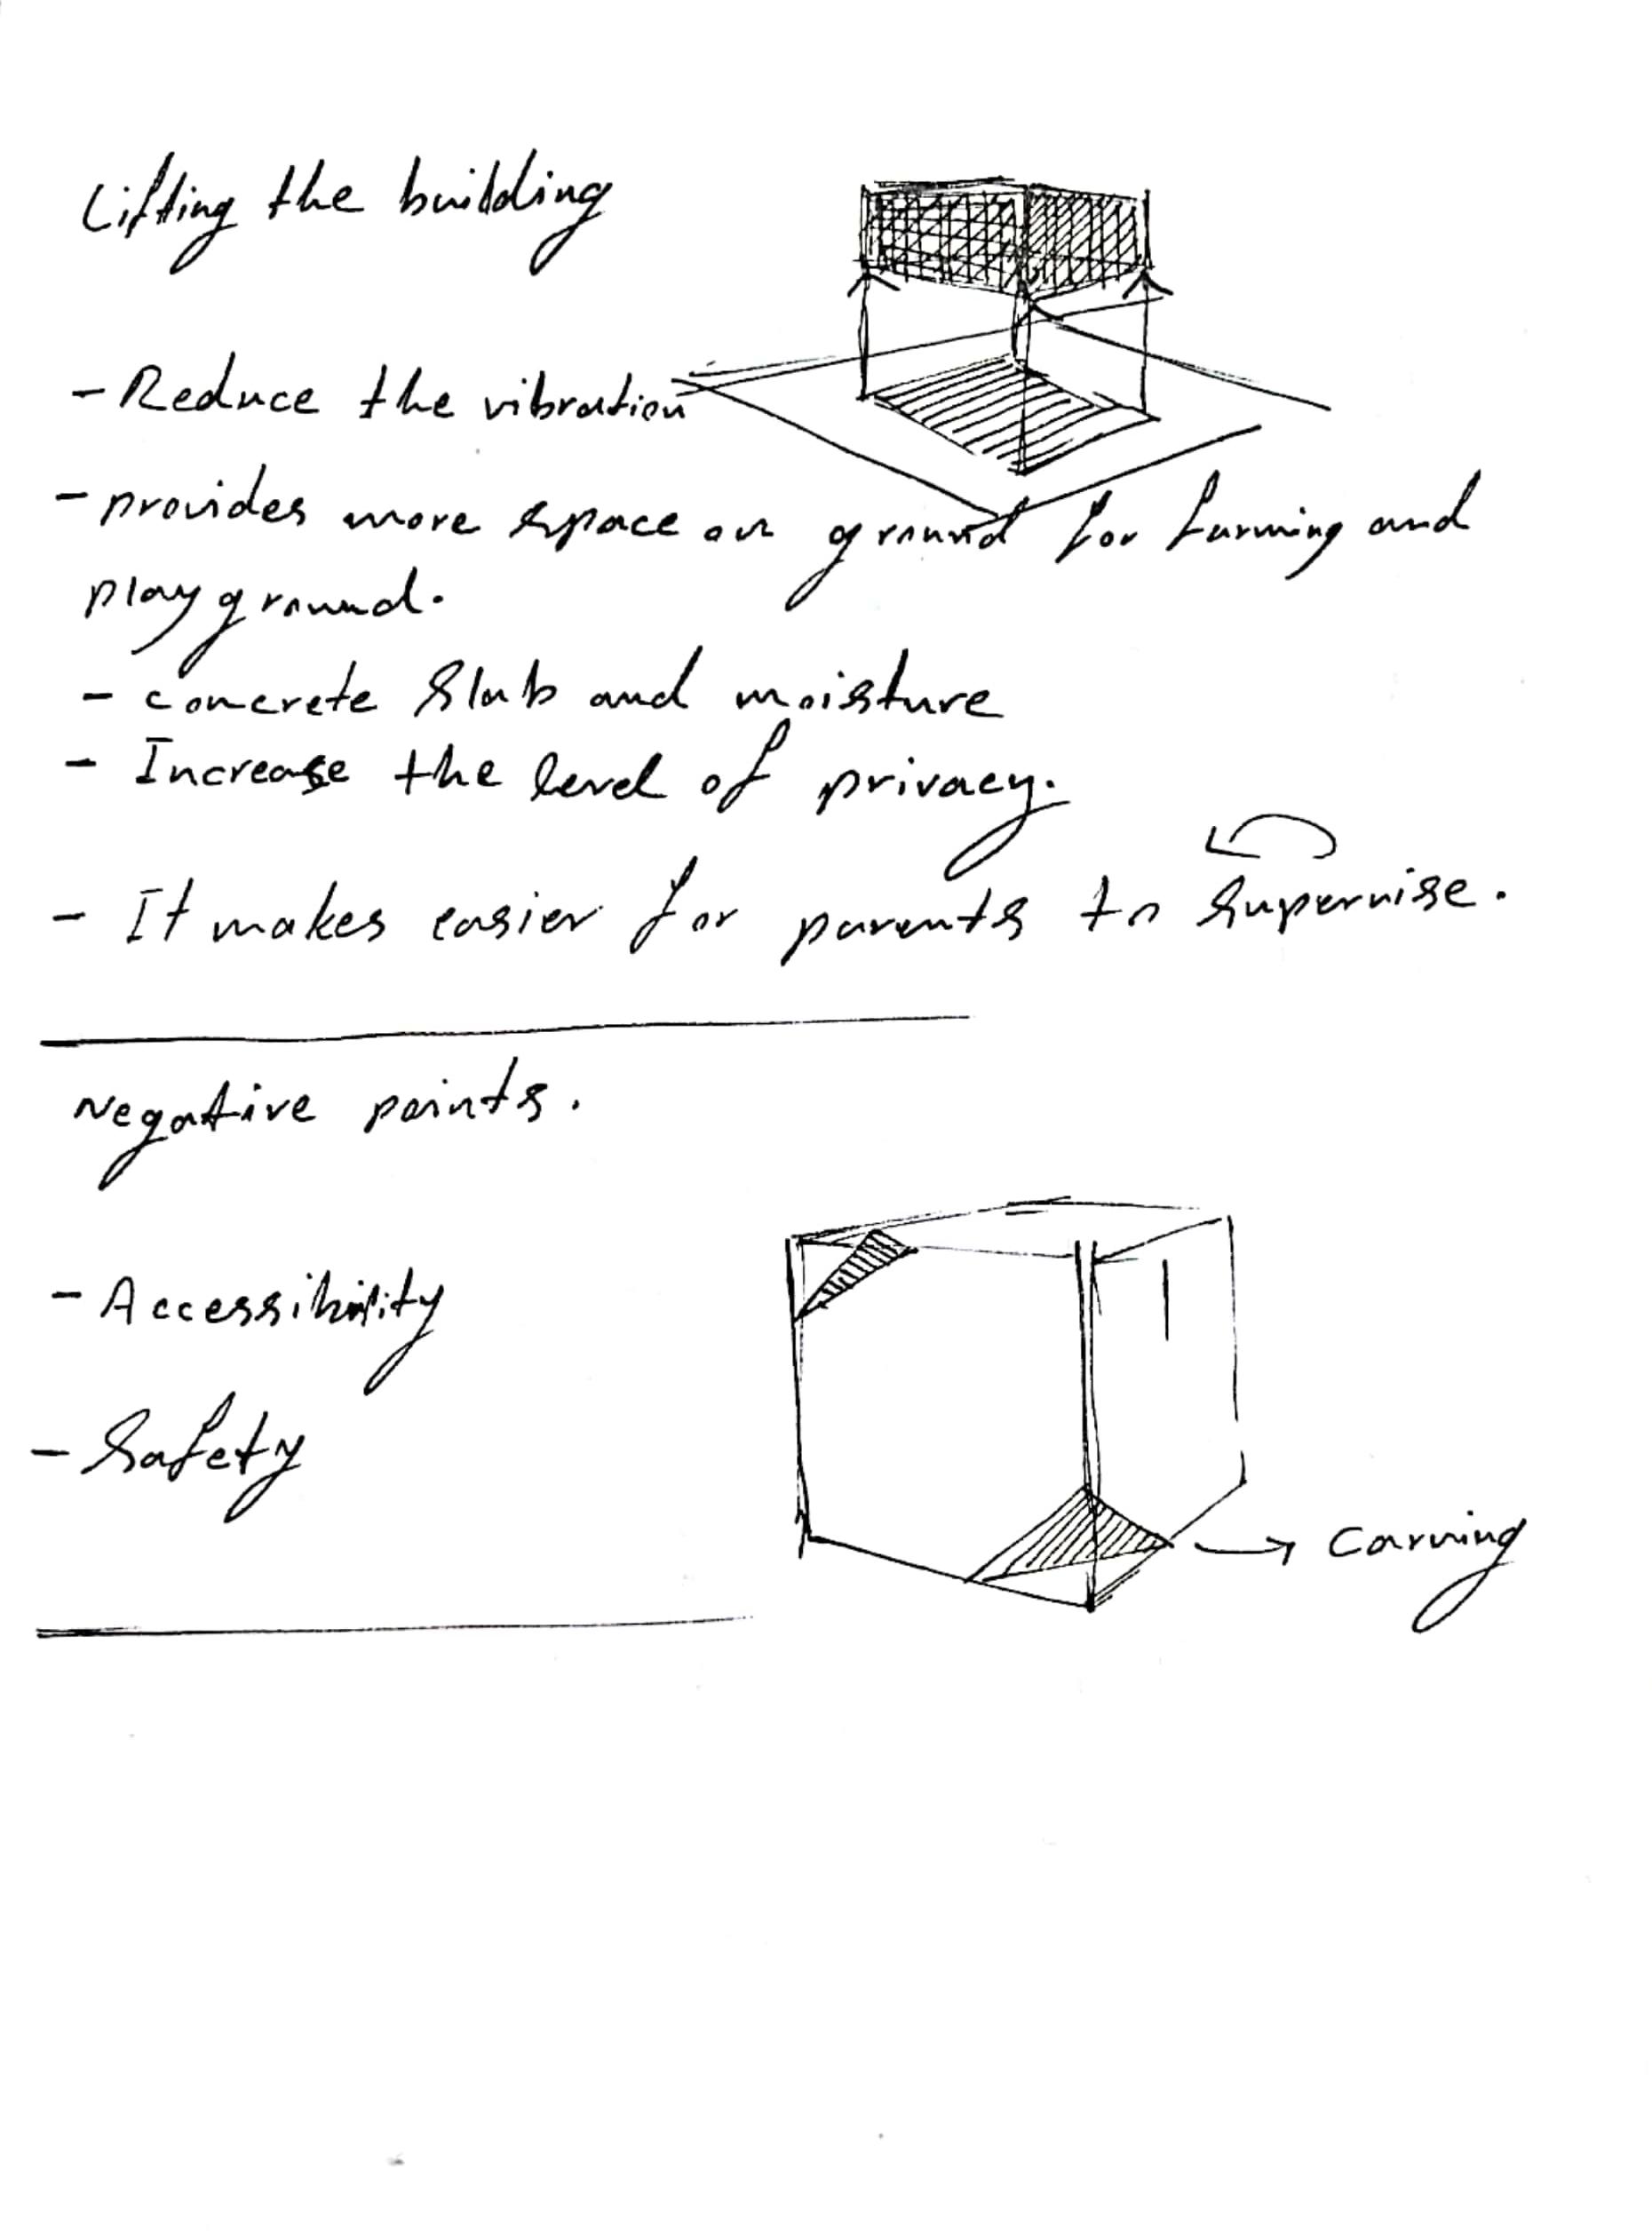 Lifting the building
- Reduce the vibration
- provides more space on ground for farming and
playground.
- concrete slab and moisture
- Increase the level of privacy.
- It makes easier for parents to supervise.
Negative points.
- Accessibility
- Safety
→ Carving